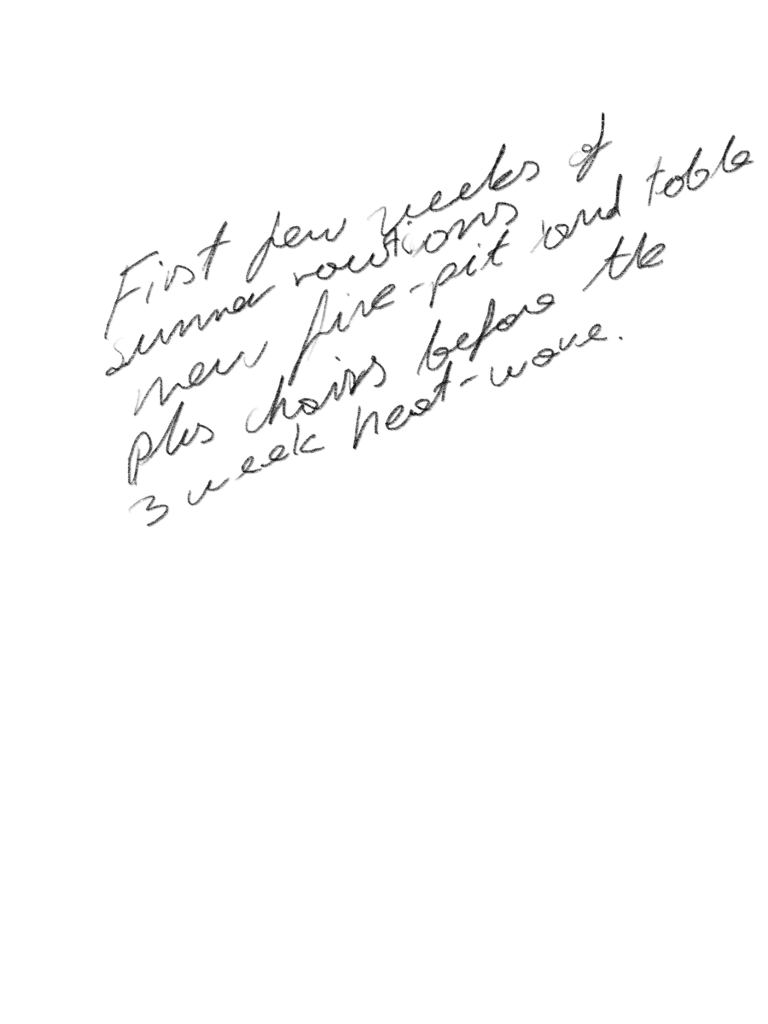 First few weeks of
summer vacations
new fire-pit and table
plus chairs before the
3 week heat-wave.